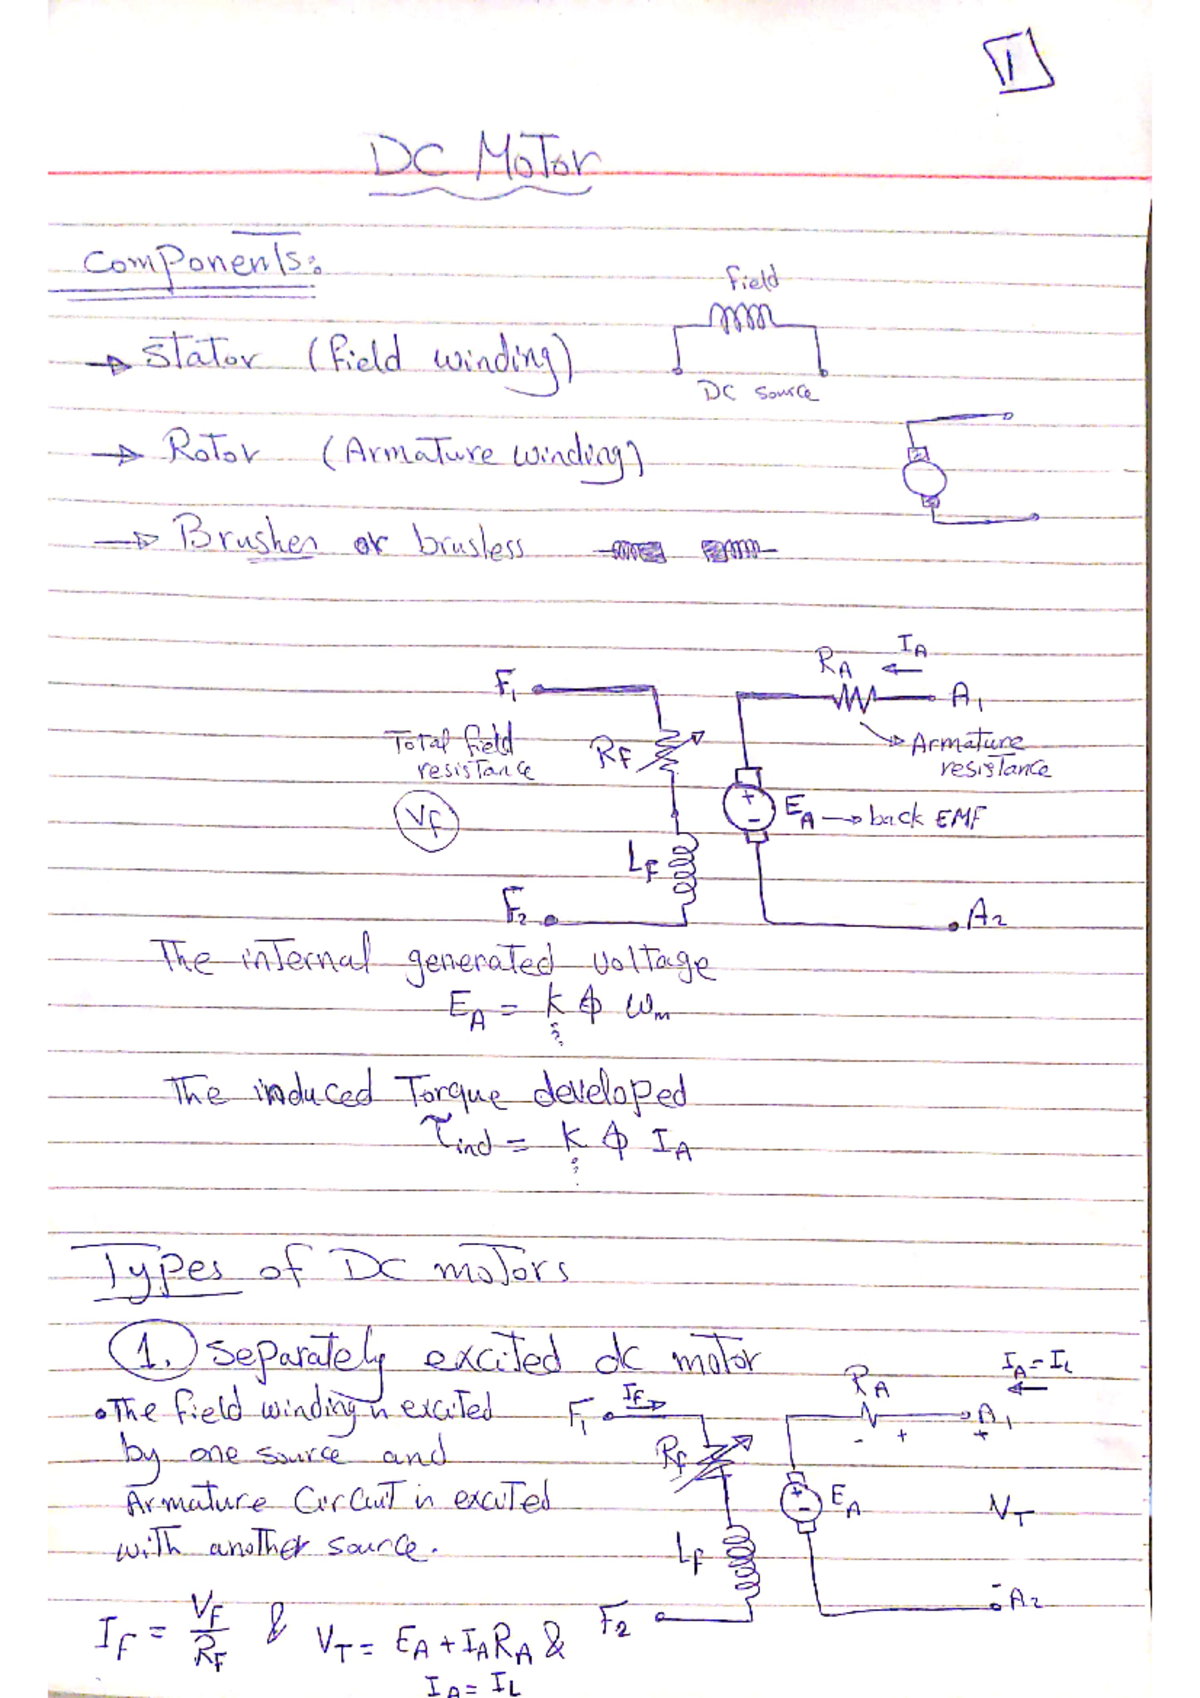 1
DC Motor
Components:
Field
→ Stator (field winding)
DC source
→ Rotor (Armature winding)
→ Brushes or brusless
I_A
R_A
F_1
A_1
Total field
resistance
R_F
Armature
resistance
V_F
+
-
E_A → back EMF
L_F
F_2
A_2
The internal generated voltage
E_A = k ϕ ω_m
The induced Torque developed
τ_ind = k ϕ I_A
Types of DC motors
1. Separately excited dc motor
I_A = I_L
R_A
• The field winding is excited
I_F
F_1
A_1
- +
+
by one source and
R_F
Armature Circuit is excited
+
-
E_A
V_T
with another source.
L_F
-
A_2
F_2
I_F = V_F / R_F & V_T = E_A + I_A R_A &
I_A = I_L